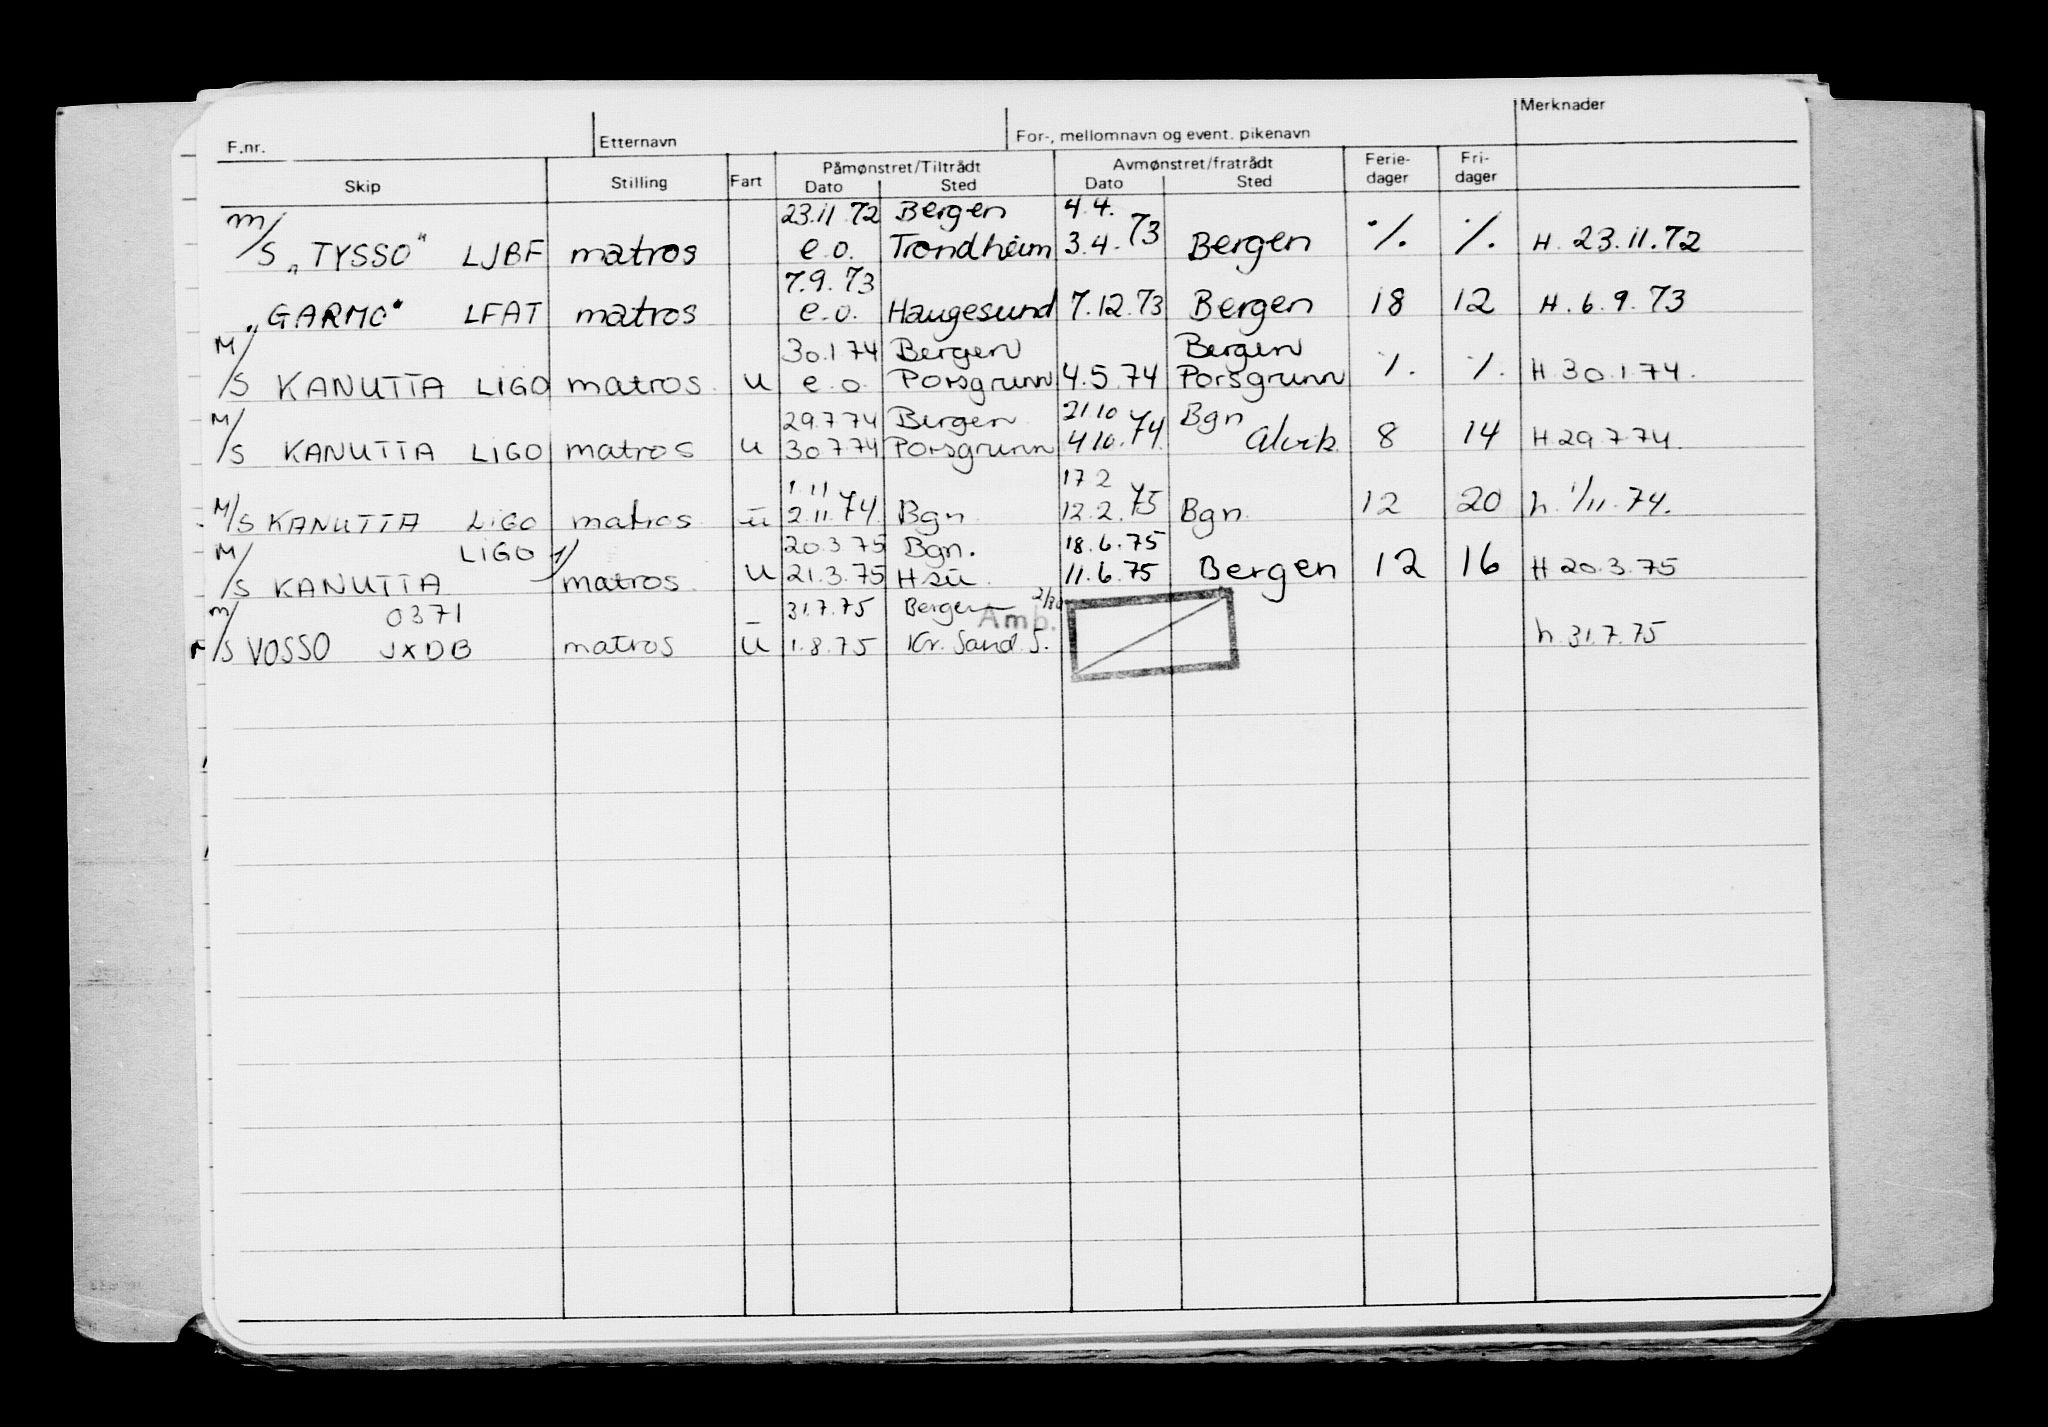 F.nr. Etternavn For-, mellomnavn og event. pikenavn Merknader
Skip Stilling Fart Påmønstret/Tiltrådt Avmønstret/fratrådt Ferie-dager Fri-dager
Dato Sted Dato Sted
23.11.72 Bergen 4.4.
m/S „TYSSO" LJBF matros e.o. Trondheim 3.4.73 Bergen ./. ./. H. 23.11.72
7.9.73
„GARMO" LFAT matros e.o. Haugesund 7.12.73 Bergen 18 12 H. 6.9.73
30.1.74 Bergen Bergen
M/S KANUTTA LIGO matros. u e.o. Porsgrunn 4.5.74 Porsgrunn ./. ./. H 30.1.74.
29.7.74 Bergen 21.10 Bgn
M/S KANUTTA LIGO matros u 30.7.74 Porsgrunn 4.10.74 Alvik. 8 14 H 29.7.74.
1.11 17.2
M/S KANUTTA LIGO matros u 2.11.74 Bgn 12.2.75 Bgn. 12 20 h. 1/11.74.
LIGO 1) 20.3.75 Bgn. 18.6.75
M/S KANUTTA matros u 21.3.75 Hsu. 11.6.75 Bergen 12 16 H 20.3.75
0371 31.7.75 Bergen
Amb.
m/S VOSSO JXDB matros u 1.8.75 Kr. Sand S. h. 31.7.75